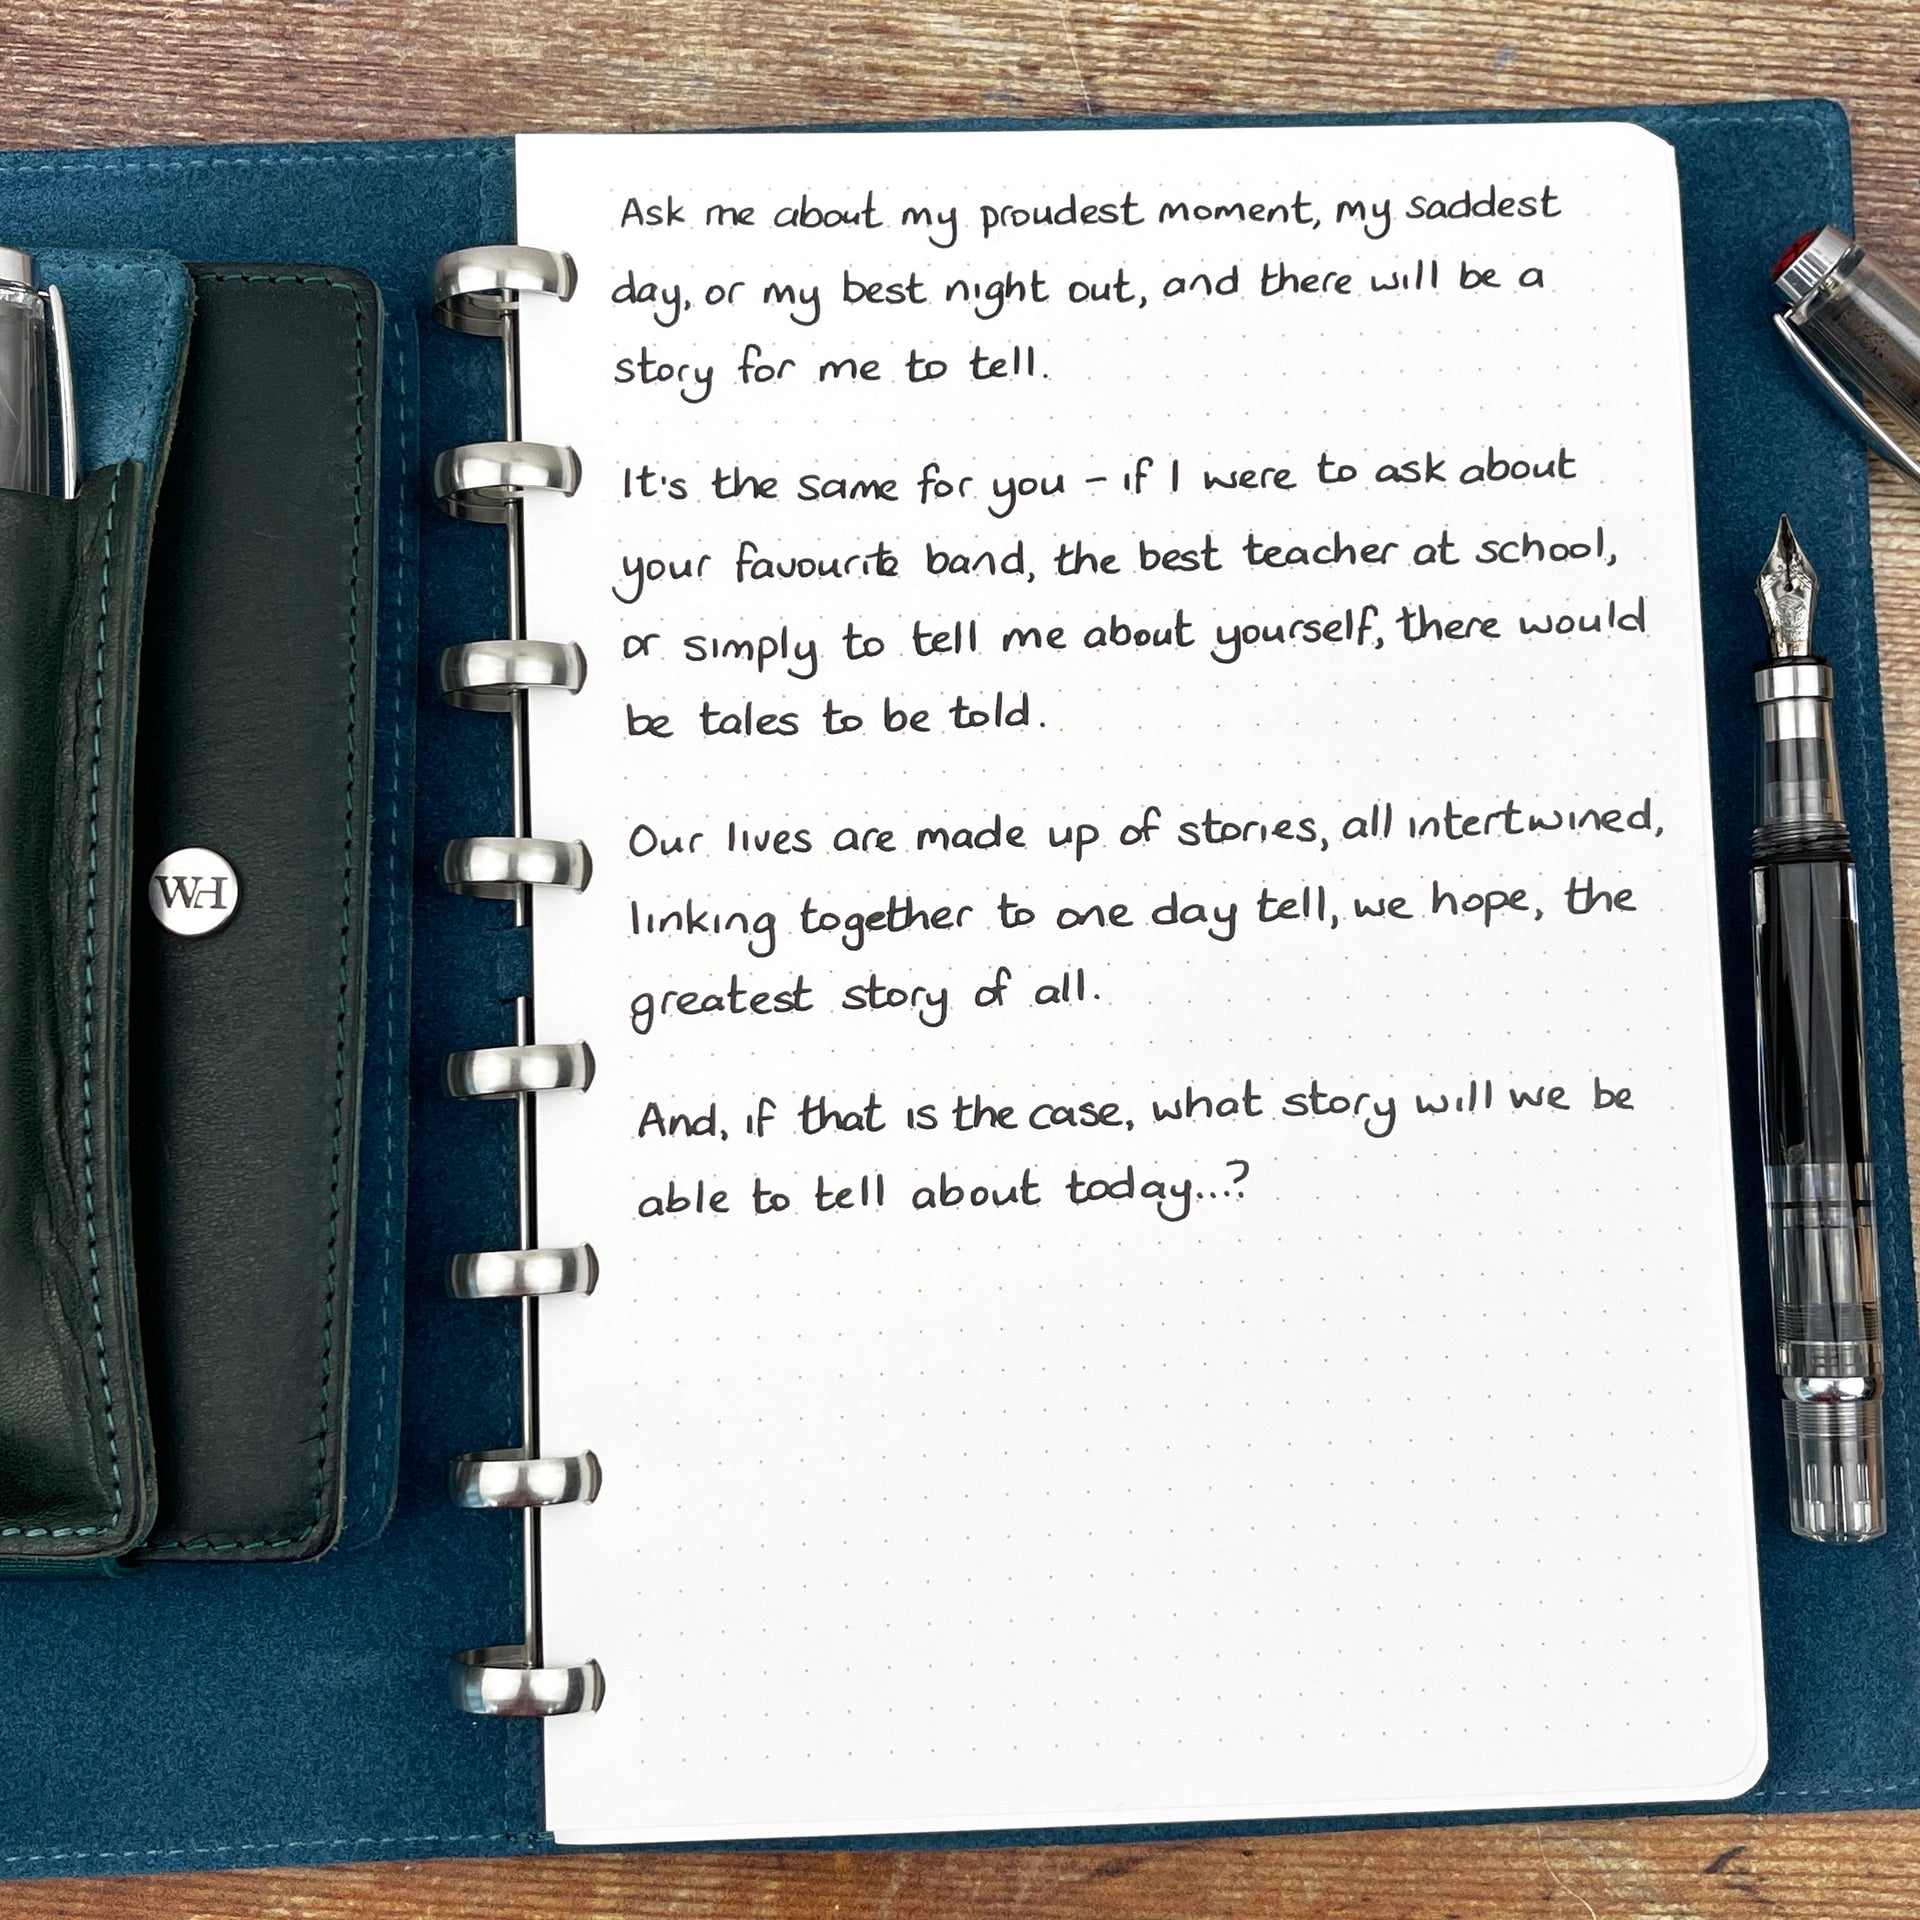 Ask me about my proudest moment, my saddest
day, or my best night out, and there will be a
story for me to tell.
It's the same for you – if I were to ask about
your favourite band, the best teacher at school,
or simply to tell me about yourself, there would
be tales to be told.
Our lives are made up of stories, all intertwined,
linking together to one day tell, we hope, the
greatest story of all.
And, if that is the case, what story will we be
able to tell about today...?
WH